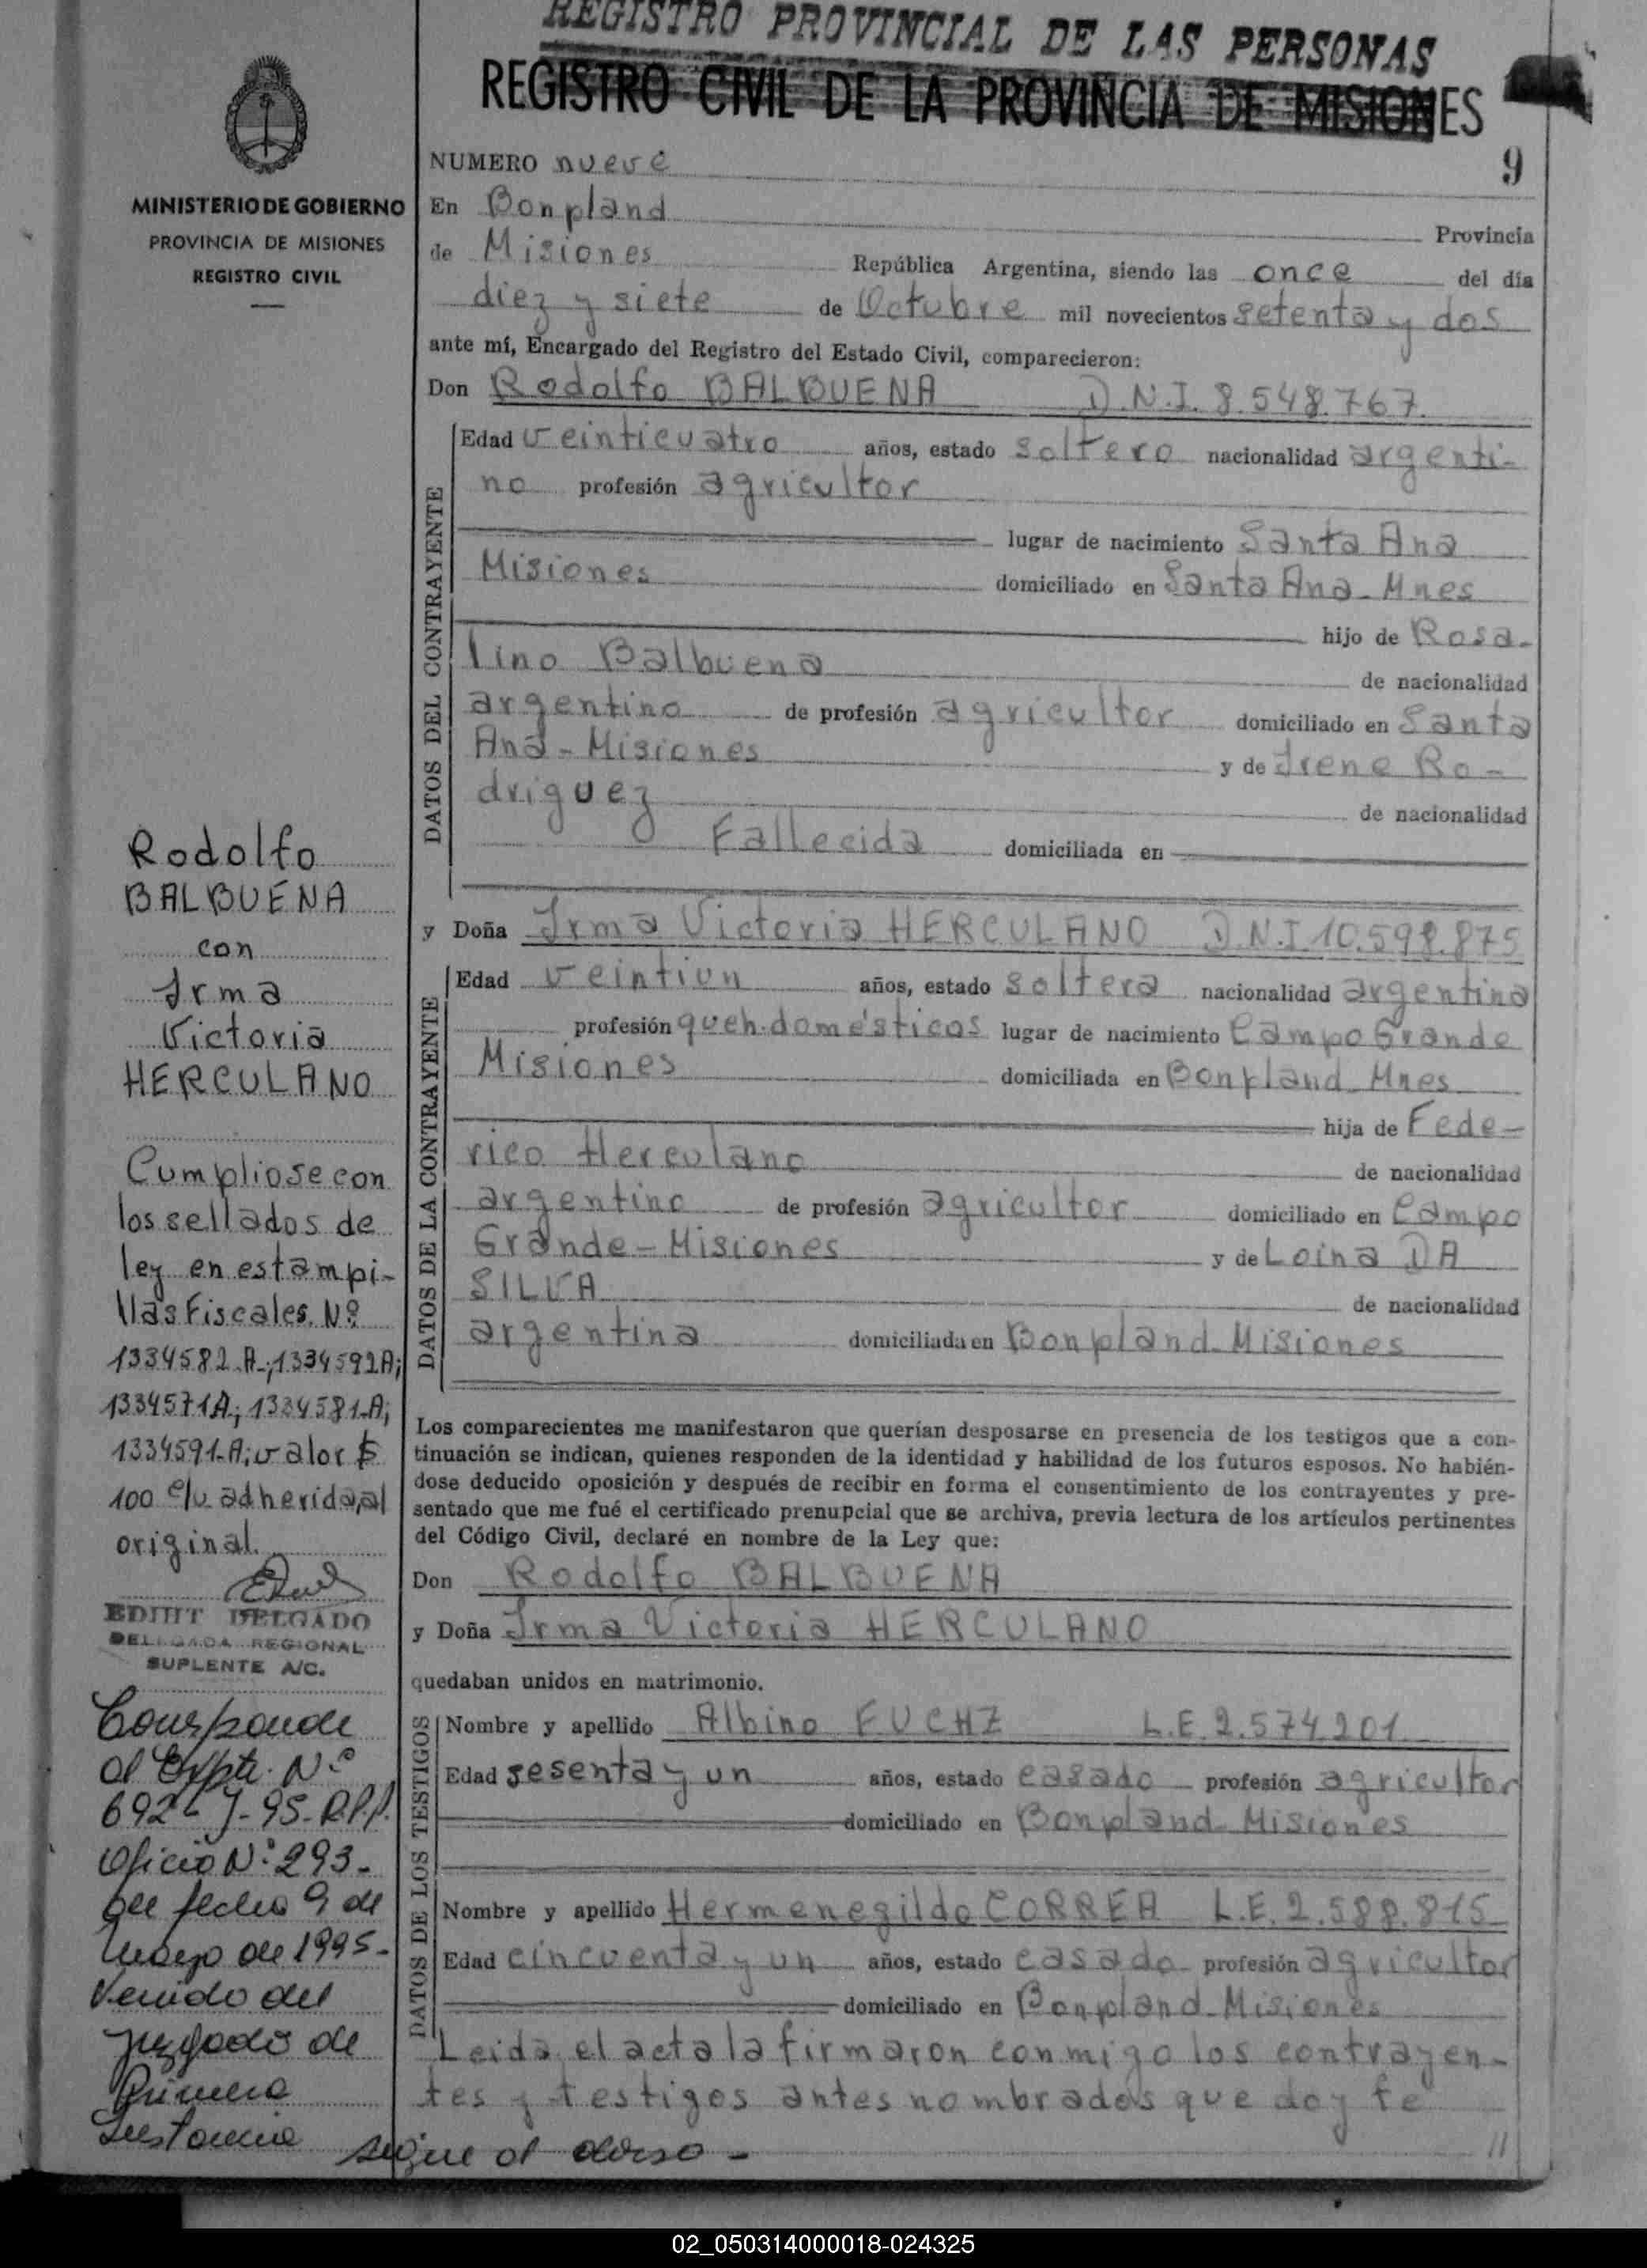 REGISTRO PROVINCIAL DE LAS PERSONAS
REGISTRO CIVIL DE LA PROVINCIA DE MISIONES
9
MINISTERIO DE GOBIERNO
PROVINCIA DE MISIONES
REGISTRO CIVIL
NUMERO nueve
En Bonpland Provincia
de Misiones República Argentina, siendo las once del día
diez y siete de Octubre mil novecientos setenta y dos
ante mí, Encargado del Registro del Estado Civil, comparecieron:
Don Rodolfo BALBUENA D.N.I. 8.548.767.
DATOS DEL CONTRAYENTE
Edad veinticuatro años, estado soltero nacionalidad argenti-
no profesión agricultor
lugar de nacimiento Santa Ana
Misiones domiciliado en Santa Ana-Mnes
hijo de Rosa-
lino Balbuena de nacionalidad
argentino de profesión agricultor domiciliado en Santa
Ana-Misiones y de Irene Ro-
driguez de nacionalidad
Fallecida domiciliada en
y Doña Irma Victoria HERCULANO D.N.I 10.598.875
DATOS DE LA CONTRAYENTE
Edad veintiun años, estado soltera nacionalidad argentina
profesión queh.domésticos lugar de nacimiento Campo Grande
Misiones domiciliada en Bonpland Mnes
hija de Fede-
rico Herculano de nacionalidad
argentino de profesión agricultor domiciliado en Campo
Grande-Misiones y de Loina DA
SILVA de nacionalidad
argentina domiciliada en Bonpland-Misiones
Los comparecientes me manifestaron que querían desposarse en presencia de los testigos que a con-
tinuación se indican, quienes responden de la identidad y habilidad de los futuros esposos. No habién-
dose deducido oposición y después de recibir en forma el consentimiento de los contrayentes y pre-
sentado que me fué el certificado prenupcial que se archiva, previa lectura de los artículos pertinentes
del Código Civil, declaré en nombre de la Ley que:
Don Rodolfo BALBUENA
y Doña Irma Victoria HERCULANO
quedaban unidos en matrimonio.
DATOS DE LOS TESTIGOS
Nombre y apellido Albino FUCHZ L.E. 2.574.201
Edad sesenta y un años, estado casado profesión agricultor
domiciliado en Bonpland-Misiones
Nombre y apellido Hermenegildo CORREA L.E. 2.588.815
Edad cincuenta y un años, estado casado profesión agricultor
domiciliado en Bonpland-Misiones
Leida el acta la firmaron conmigo los contrayen-
tes y testigos antes nombrados que doy fe
Rodolfo
BALBUENA
con
Irma
Victoria
HERCULANO
Cumpliose con
los sellados de
ley en estampi-
llas Fiscales. Nº
1334582.A-;1334592A;
1334571A; 1334581-A;
1334591-A; valor $
100 c/u adherida, al
original.
EDIHT DELGADO
DELEGADA REGIONAL
SUPLENTE A/C.
Corresponde
al Expte. Nº
692-J-95-R.P.P.
Oficio Nº 293-
de fecha 9 de
marzo de 1995-
Venido del
juzgado de
Primera
Instancia sigue al dorso-
02_050314000018-024325